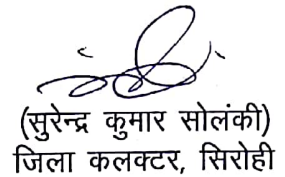 (सुरेन्द्र कुमार सोलंकी)
जिला कलक्टर, सिरोही